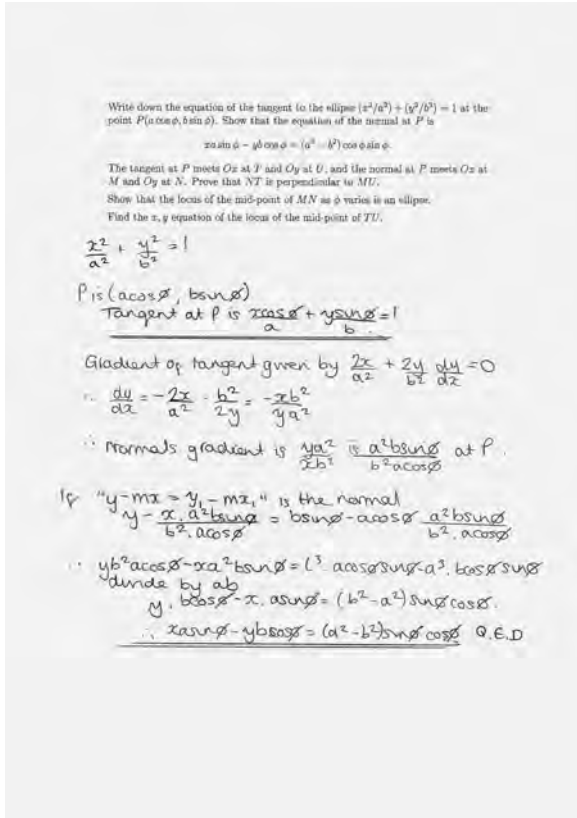 Write down the equation of the tangent to the ellipse (x²/a²) + (y²/b²) = 1 at the
point P(a cos ϕ, b sin ϕ). Show that the equation of the normal at P is
xa sin ϕ − yb cos ϕ = (a² − b²) cos ϕ sin ϕ.
The tangent at P meets Ox at T and Oy at U, and the normal at P meets Ox at
M and Oy at N. Prove that NT is perpendicular to MU.
Show that the locus of the mid-point of MN as ϕ varies is an ellipse.
Find the x, y equation of the locus of the mid-point of TU.
x²/a² + y²/b² = 1
P is (acosø, bsinø)
Tangent at P is xcosø/a + ysinø/b = 1
Gradient of tangent given by 2x/a² + 2y/b² dy/dx = 0
∴ dy/dx = -2x/a² · b²/2y = -xb²/ya²
∴ Normals gradient is ya²/xb² is a²bsinø/b²acosø at P.
If "y-mx = y₁-mx₁" is the normal
y - x.a²bsinø/b².acosø = bsinø-acosø a²bsinø/b².acosø
∴ yb²acosø-xa²bsinø = b³.acosøsinø-a³.bcosøsinø
divide by ab
y.bcosø-x.asinø = (b²-a²)sinøcosø.
∴ xasinø-ybcosø = (a²-b²)sinøcosø Q.E.D